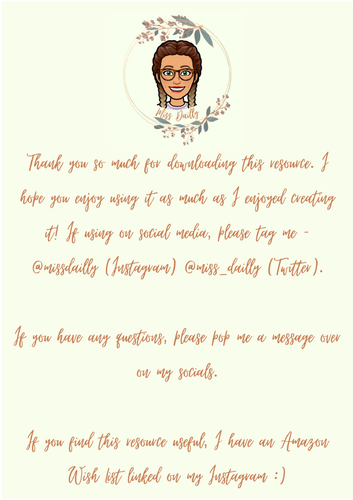 Miss Dailly
Thank you so much for downloading this resource. I
hope you enjoy using it as much as I enjoyed creating
it! If using on social media, please tag me -
@missdailly (Instagram) @miss_dailly (Twitter).
If you have any questions, please pop me a message over
on my socials.
If you find this resource useful, I have an Amazon
Wish list linked on my Instagram :)